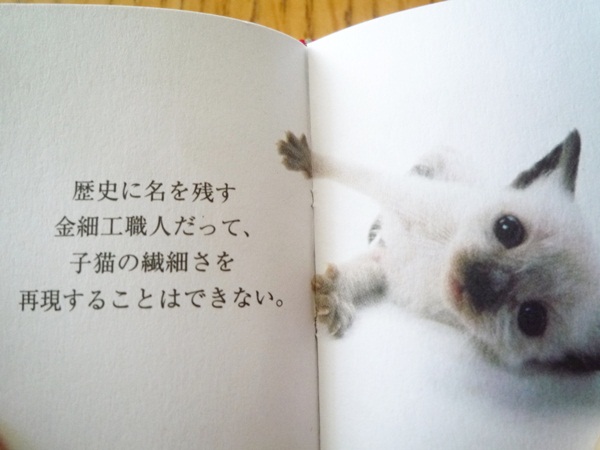 歴史に名を残す
金細工職人だって、
子猫の繊細さを
再現することはできない。